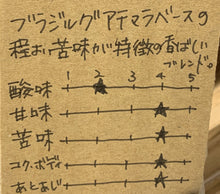 ブラジルグアテマラベースの
程よい苦味が特徴の香ばしい
ブレンド。
1 2 3 4 5
酸味
甘味
苦味
コク・ボディ
あとあじ